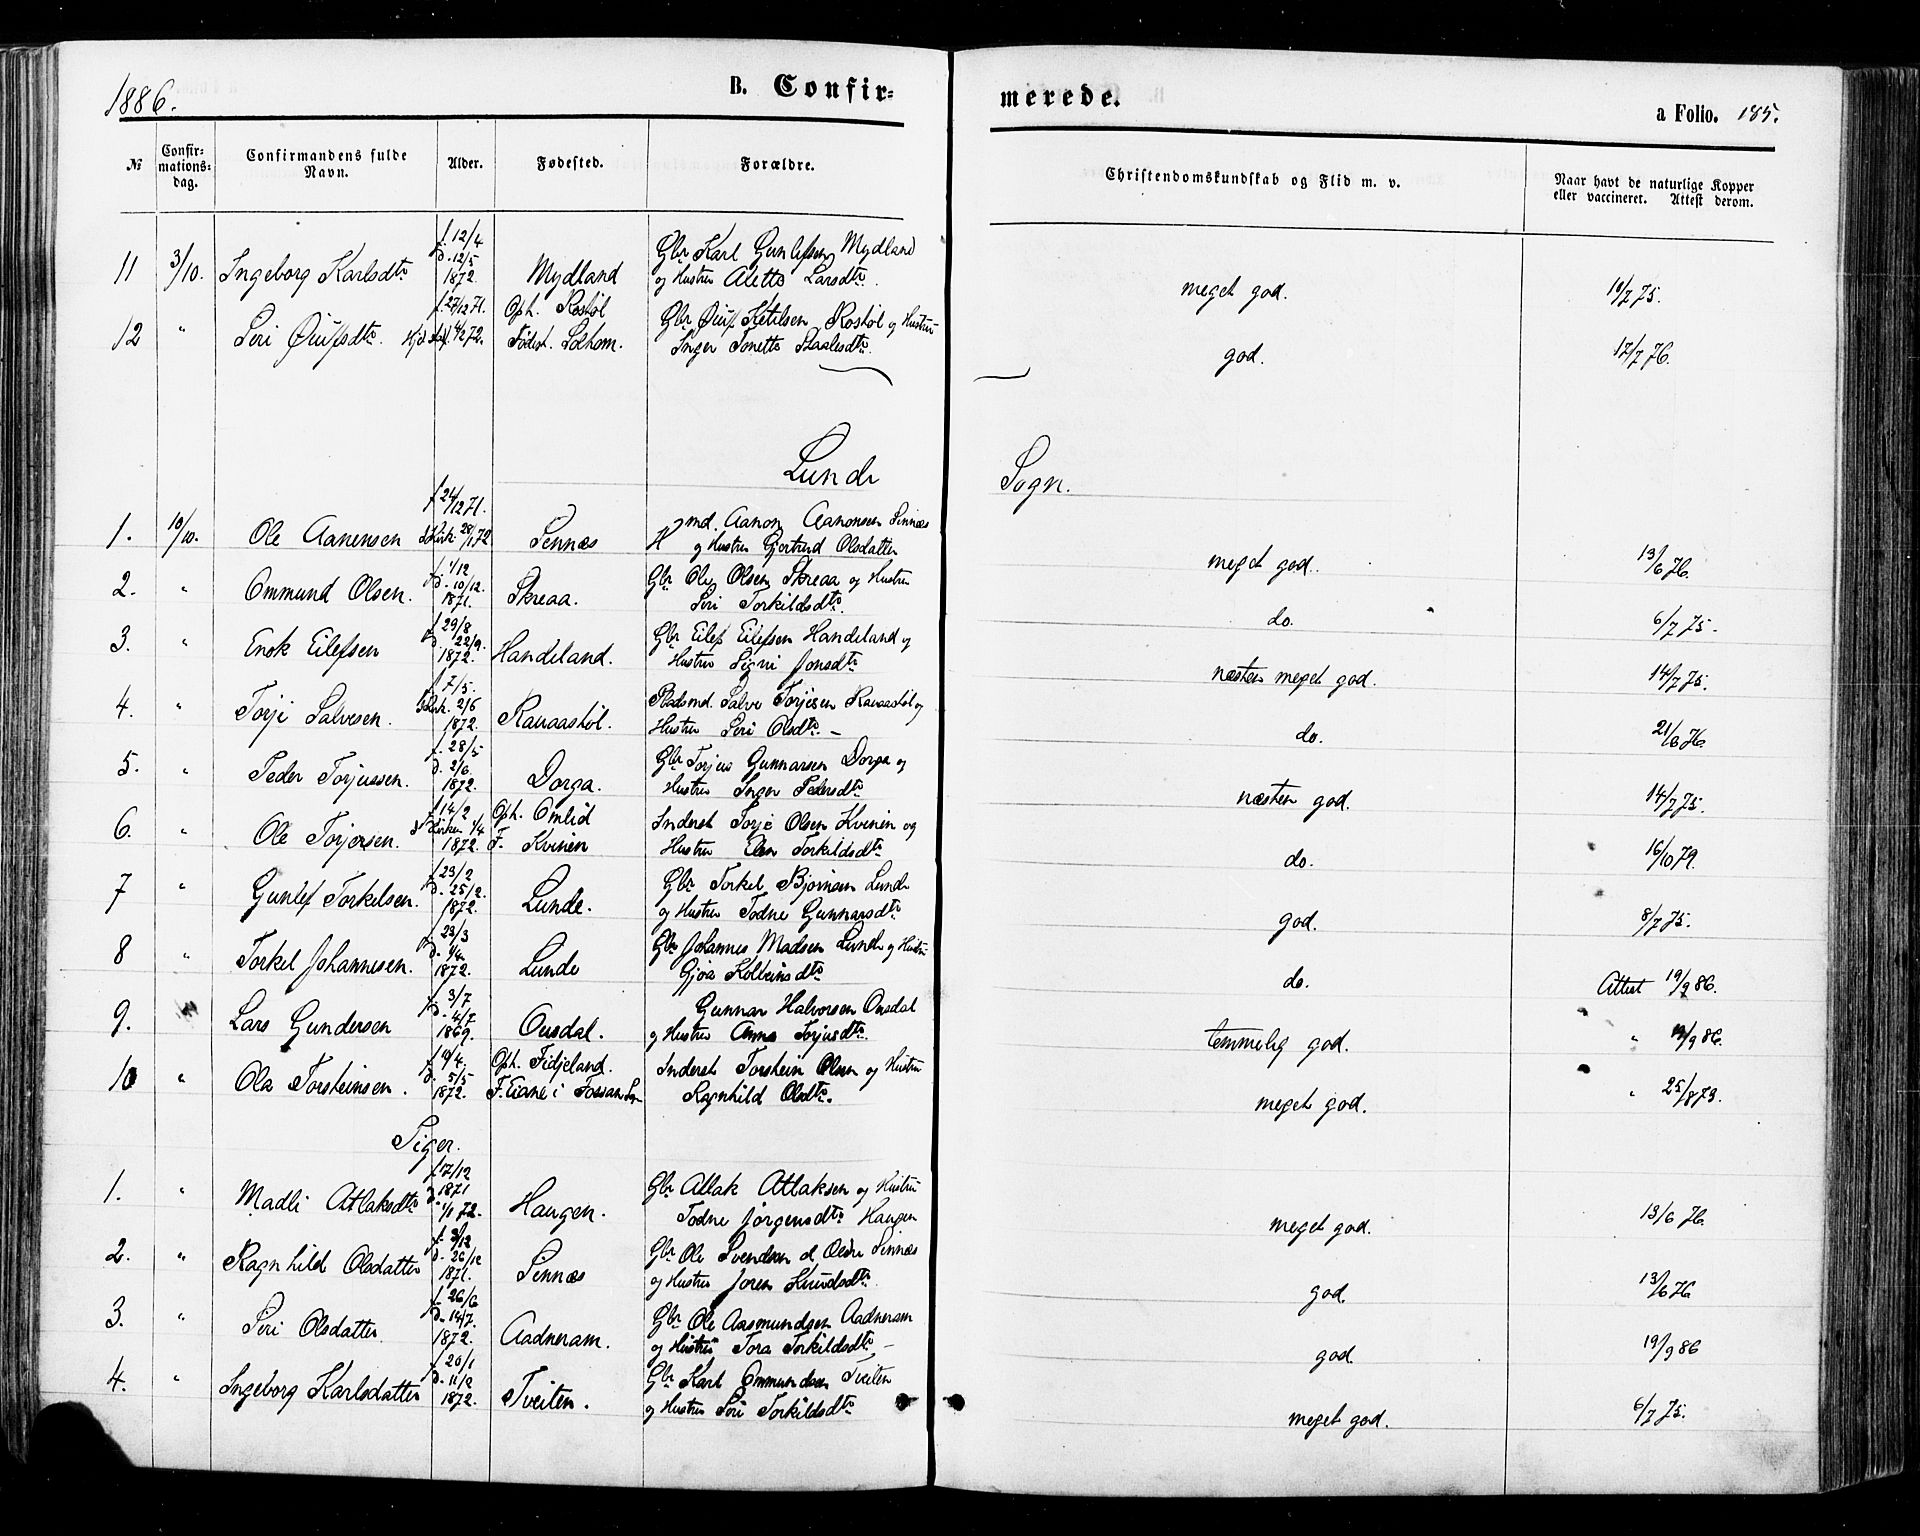 1886.
B. Confir=
merede.
a Folio. 185.
№
Confir=
mations=
dag.
Confirmandens fulde
Navn.
Alder.
Fødested.
Forældre.
Christendomskundskab og Flid m. v.
Naar havt de naturlige Kopper
eller vaccineret. Attest derom.
11 3/10. Ingeborg Karlsdtr f. 12/4 d. 12/5 1872. Mydland Gbr Karl Gunlefsen Mydland
og Hustru Aletta Larsdtr. meget god. 19/7 75.
12 " Seri Øiufsdtr. f. 27/12 71. 4/2 72. Oph. Rostøl
Fødest. Solhom. Gbr Øiuf Ketilsen Rostøl og Hustru
Inger Tonette Staalesdtr. god. 17/7 76.
Lunde Sogn.
1. 10/10. Ole Aanensen f. 24/12 71. 28/1 72 Sennæs Hmd. Aanon Aanonsen Sinnæs
og Hustru Gjertrud Olsdatter meget god. 13/6 76.
2. " Ommund Olsen. f. 1/12 d. 10/12. 1871. Skreaa. Gbr Ole Olsen Skreaa og Hustru
Seri Torkildsdtr. do. 6/7 75.
3. " Enok Eilefsen f. 29/8 d. 22/9. 1872. Handeland. Gbr Eilef Eilefsen Handeland og
Hustru Signi Jonsdtr næsten meget god. 14/7 75.
4. " Torje Salvesen. f. 7/5. 2/6 1872. Ravaastøl. Pladsmd. Salve Torjesen Ravaastøl og
Hustru Seri Olsdtr. — do. 21/6 76.
5. " Peder Torjussen. f. 28/5 d. 2/6. 1872. Dorga. Gbr Torjus Gunnarsen Dorga og
Hustru Inger Pedersdtr næsten god. 14/7 75.
6. " Ole Torjersen. f. 14/2 1/4 1872. Oph. Omlid
F. Kvinen Inderst Torje Olsen Kvinen og
Hustru Torkildsdtr do. 16/10 79.
7 " Gunlef Torkelsen. f. 23/2 d. 25/2. 1872. Lunde. Gbr Torkel Bjornsen Lunde
og Hustru Todne Gunnarsdtr god. 8/7 75.
8 " Torkel Johannesen. f. 23/3 d. 1/4. 1872. Lunde Gbr Johannes Madsen Lunde og Hustru
Gjoa Kolbeinsdtr do. Attest 19/9 86.
9. " Lars Gundersen f. 3/7 d. 4/7 1869. Ousdal. Gunnar Halvorsen Ousdal
og Hustru Anna Torjusdtr. temmelig god. " 19/9 86.
10 " Ola Torsteinsen. f. 19/4. d. 5/5 1872. Oph. Fidjeland.
F. Eiane i Fossan Inderst Torstein Olsen og Hustru
Ragnhild Olsdtr. meget god. " 25/8 73.
Piger.
1. " Madli Atlaksdtr f. 17/12 1871 d. 1/1 72. Haugen. Gbr Atlak Atlaksen og Hustru
Todne Jørgensdtr Haugen meget god. 13/6 76.
2. " Ragnhild Olsdatter f. 3/12 d. 26/12 1871. Sennæs Gbr Ole Svendsen Sinnæs
og Hustru Joren Knudsdtr. god. 13/6 76
3. " Seri Olsdatter. f. 26/6 d. 14/7. 1872. Aadneram. Gbr Ole Aasmundsen Aadneram
og Hustru Tora Torkildsdtr — god. 19/9 86
4. " Ingeborg Karlsdatter f. 20/1 d. 11/2 1872. Tveiten. Gbr Karl Ommundsen Tveiten
og Hustru Seri Torkildsdtr meget god. 6/7 75.